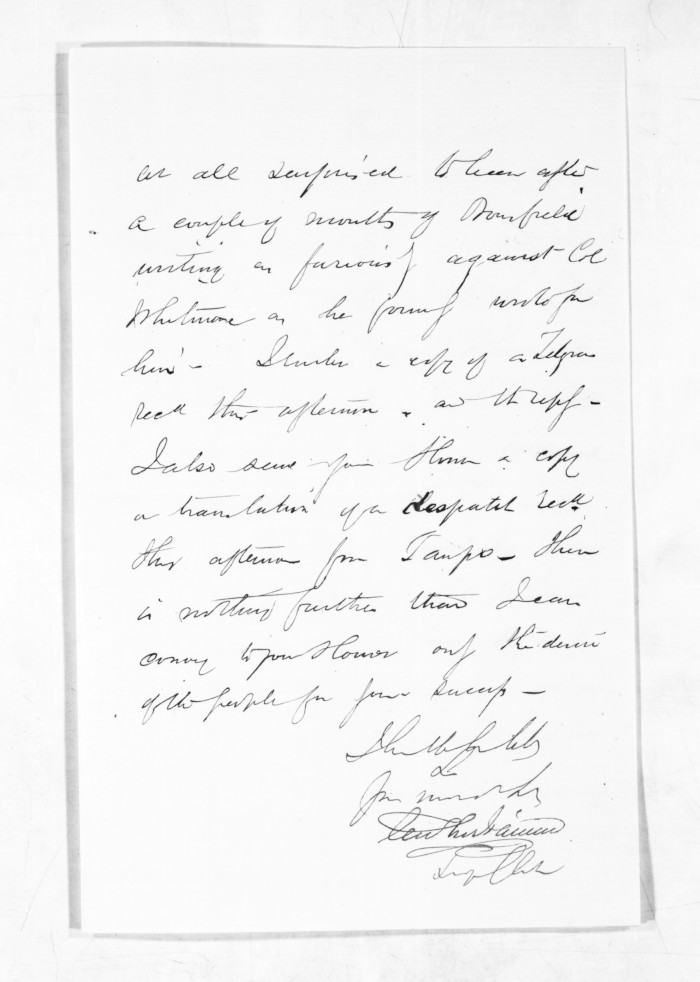 at all surprised to hear after
a couple of months of Bousfield
writing as furiously against Col
Whitmore as he formerly wrote for
him - I enclose a copy of a Telegram
recd this afternoon & and the reply -
I also send your Honor a copy
a translation of a despatch recd
this afternoon from Taupo - There
is nothing further that I can
convey to your Honor only the desire
of the people for your success -
I have the honor to be
Your